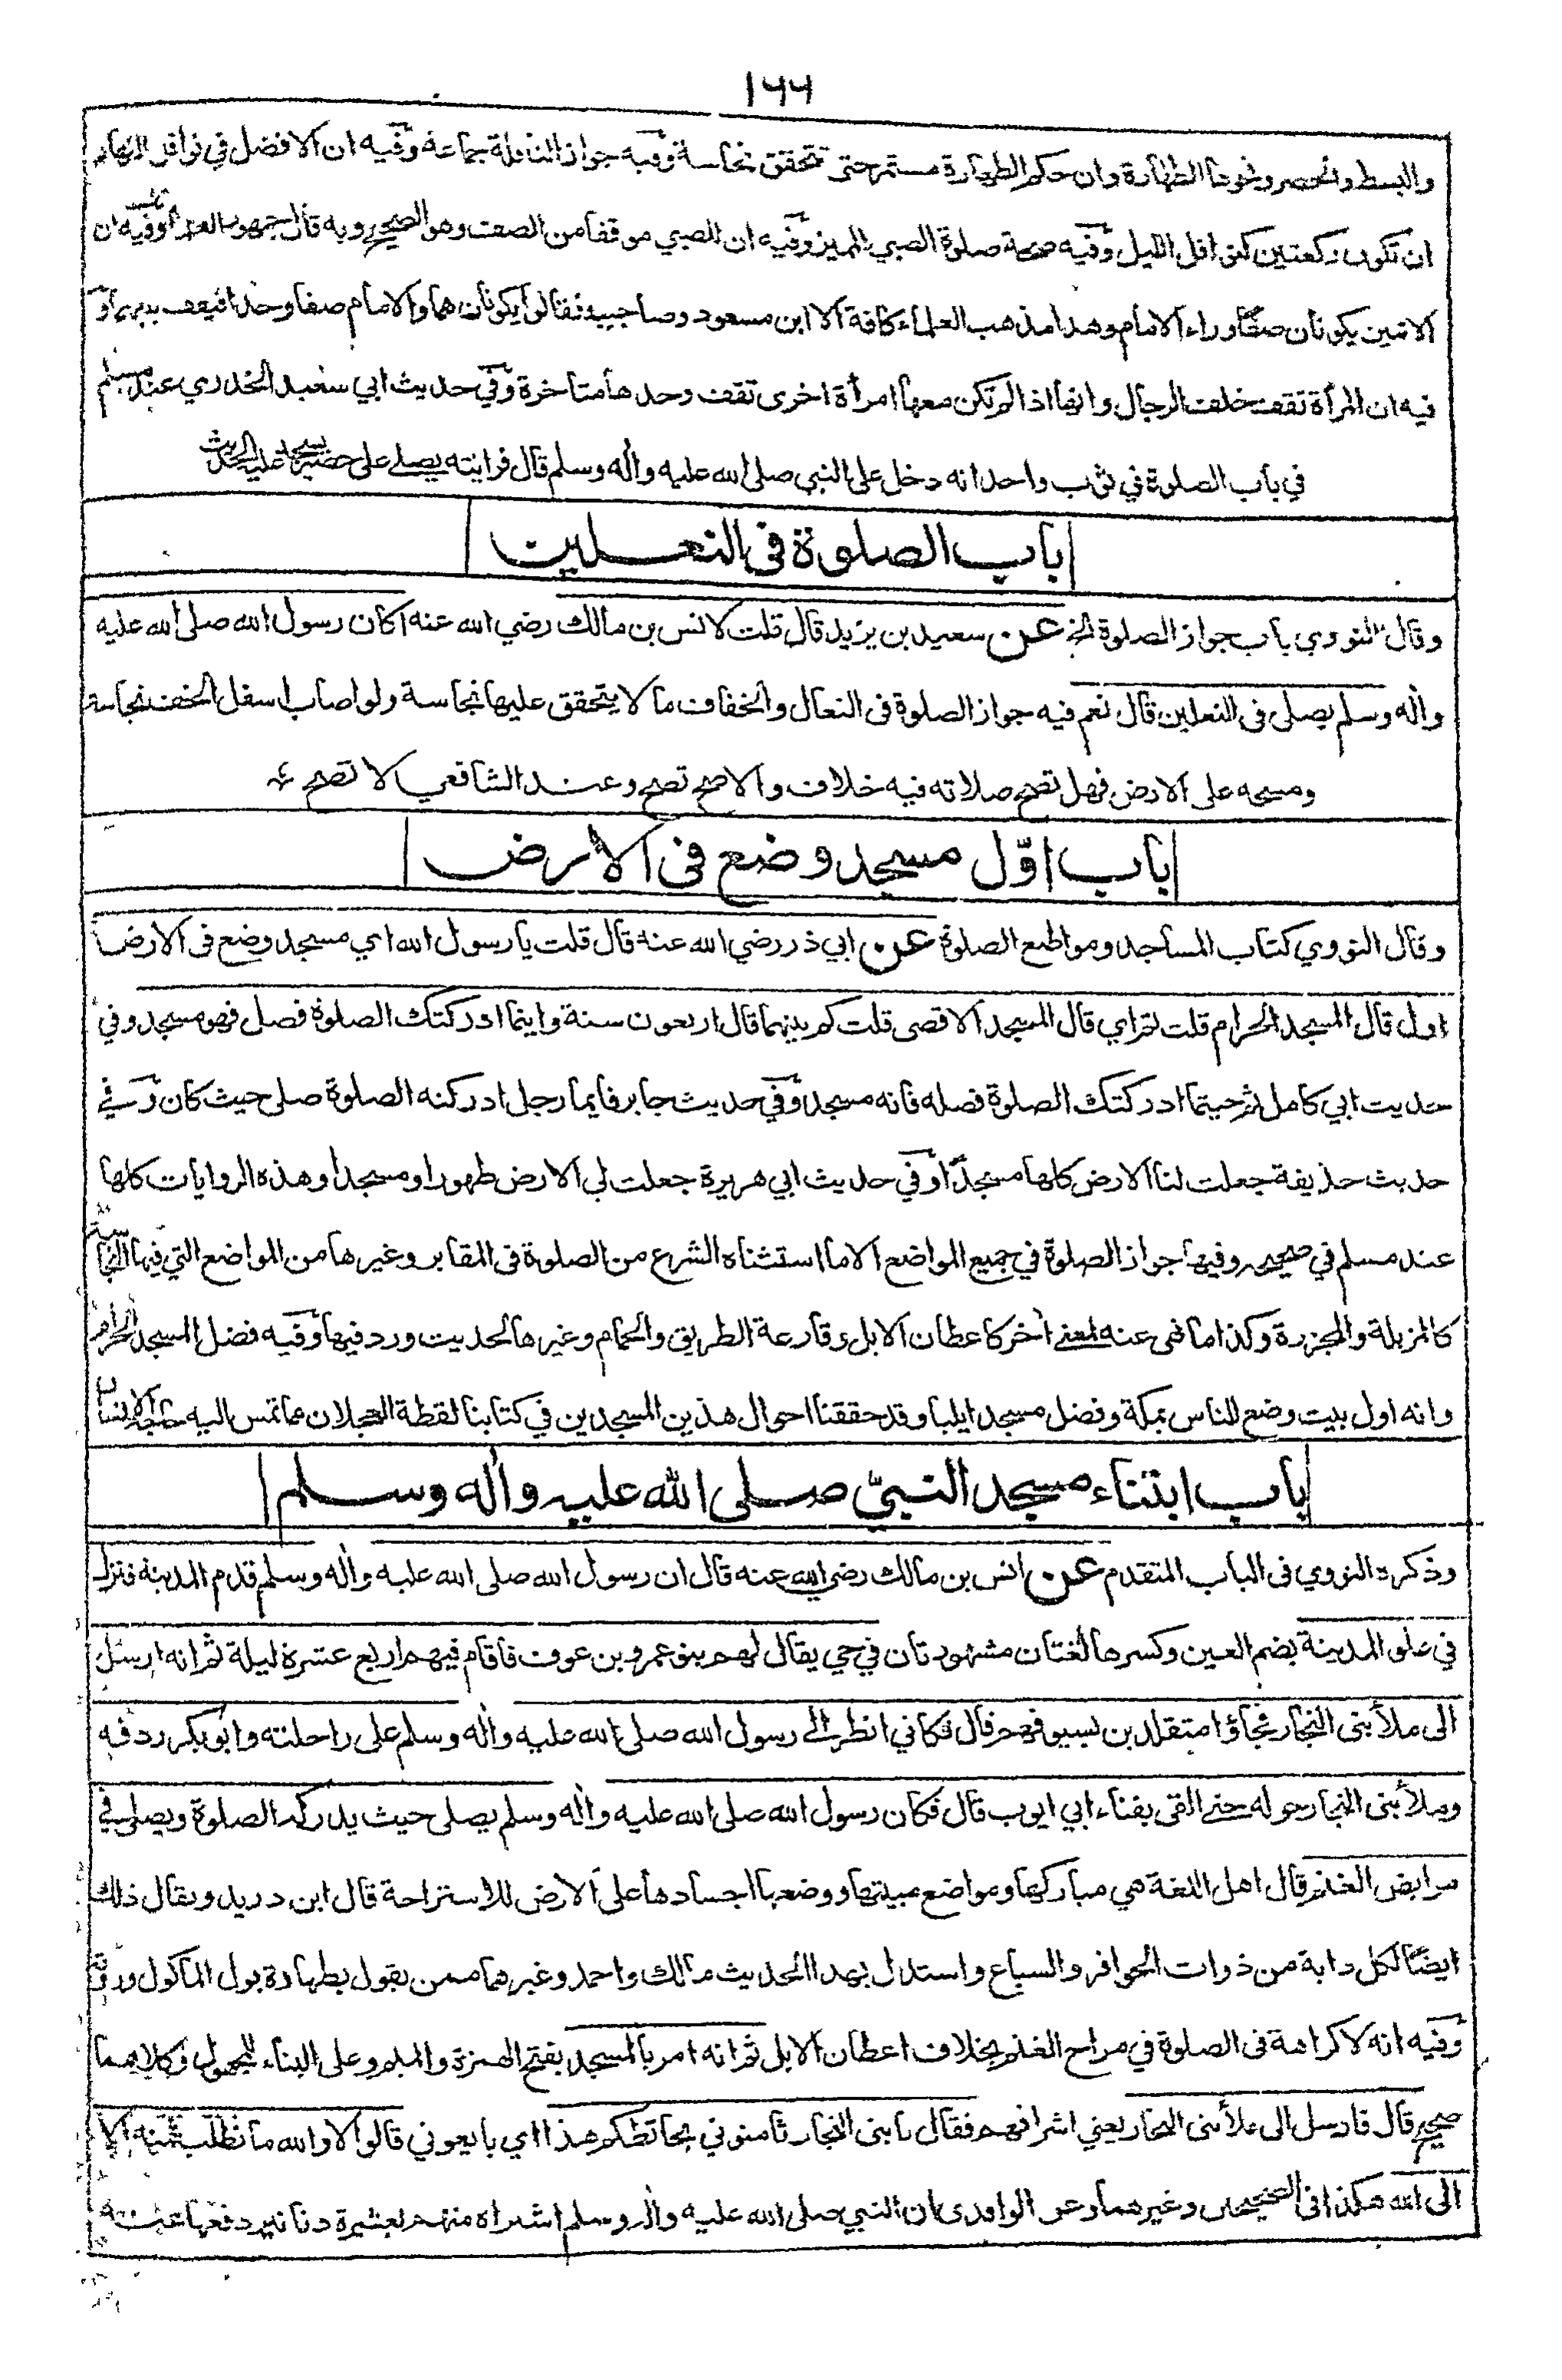 ١٦٦
والبسط والحصر ونحوها الطهارة وان حكم الطهارة مستمر حتى تتحقق نجاسة وفيه جواز النافلة جماعة وفيه ان الافضل في نوافل النهار
ان تكون ركعتين كنوافل الليل وفيه صحة صلوة الصبي المميز وفيه ان للصبي موقفا من الصف وهو الصحيح وبه قال جمهور العلماء وفيه ان
الاثنين يكونان صفا وراء الامام وهذا مذهب العلماء كافة الا ابن مسعود وصاحبيه فقالوا يكونان هما والامام صفا واحدا فيقف بينهما و
فيه ان المرأة تقف خلف الرجال وانها اذا لم تكن معها امرأة اخرى تقف وحدها متأخرة وفي حديث ابي سعيد الخدري عند مسلم
في باب الصلوة في ثوب واحد انه دخل على النبي صلى الله عليه وأله وسلم قال فرايته يصلي على حصير يسجد عليه الحديث
باب الصلوة فى النعلين
وقال النووي باب جواز الصلوة الخ عن سعيد بن يزيد قال قلت لانس بن مالك رضي الله عنه اكان رسول الله صلى الله عليه
وأله وسلم يصلى فى النعلين قال نعم فيه جواز الصلوة فى النعال والخفاف ما لا يتحقق عليها نجاسة ولو اصاب اسفل الخف نجاسة
ومسحه على الارض فهل تصح صلاته فيه خلاف والاصح تصح وعند الشافعي لا تصح
باب اوّل مسجد وضع فى الارض
وقال النووي كتاب المساجد ومواضع الصلوة عن ابي ذر رضي الله عنه قال قلت يا رسول الله اي مسجد وضع فى الارض
اول قال المسجد الحرام قلت ثم اي قال المسجد الاقصى قلت كم بينهما قال اربعون سنة واينما ادركتك الصلوة فصل فهو مسجد وفي
حديث ابي كامل ثم حيثما ادركتك الصلوة فصله فانه مسجد وفي حديث جابر فايما رجل ادركته الصلوة صلى حيث كان وفي
حديث حذيفة جعلت لنا الارض كلها مسجدًا وفي حديث ابي هريرة جعلت لي الارض طهورا ومسجدا وهذه الروايات كلها
عند مسلم في صحيحه وفيها جواز الصلوة في جميع المواضع الا ما استثناه الشرع من الصلوة فى المقابر وغيرها من المواضع التي فيها النجاسة
كالمزبلة والمجزرة وكذا ما نهى عنه لمعنى أخر كاعطان الابل وقارعة الطريق والحمام وغيرها لحديث ورد فيها وفيه فضل المسجد الحرام
وانه اول بيت وضع للناس بمكة وفضل مسجد ايليا وقد حققنا احوال هذين المسجدين في كتابنا لقطة العجلان مما تمس اليه حاجة الانسان
باب ابتناء مسجد النبيّ صلى الله عليه وأله وسلم
وذكره النووي فى الباب المتقدم عن انس بن مالك رضي الله عنه قال ان رسول الله صلى الله عليه وأله وسلم قدم المدينة فنزل
في علو المدينة بضم العين وكسرها لغتان مشهورتان في حي يقال لهم بنو عمرو بن عوف فاقام فيهم اربع عشرة ليلة ثم انه ارسل
الى ملأ بنى النجار فجاؤا متقلدين بسيوفهم قال فكاني انظر الى رسول الله صلى الله عليه وأله وسلم على راحلته وابو بكر ردفه
وملأ بنى النجار حوله حتى القى بفناء ابي ايوب قال فكان رسول الله صلى الله عليه وأله وسلم يصلى حيث يدركه الصلوة ويصلى في
مرابض الغنم قال اهل اللغة هي مباركها ومواضع مبيتها ووضعها اجسادها على الارض للاستراحة قال ابن دريد ويقال ذلك
ايضًا لكل دابة من ذوات الحوافر والسباع واستدل بهذا الحديث مالك واحمد وغيرهما ممن يقول بطهارة بول المأكول وروثه
وفيه انه لا كراهة فى الصلوة في مراح الغنم بخلاف اعطان الابل ثم انه امر بالمسجد بفتح الهمزة والميم وعلى البناء للمجهول وكلاهما
صحيح قال فارسل الى ملأ بنى النجار يعني اشرافهم فقال يا بنى النجار ثامنوني بحائطكم هذا اي بايعوني قالوا لا والله ما نطلب ثمنه الا
الى الله هكذا فى الصحيحين وغيرهما وعن الواقدى ان النبي صلى الله عليه وأله وسلم اشتراه منهم بعشرة دنانير دفعها عنه